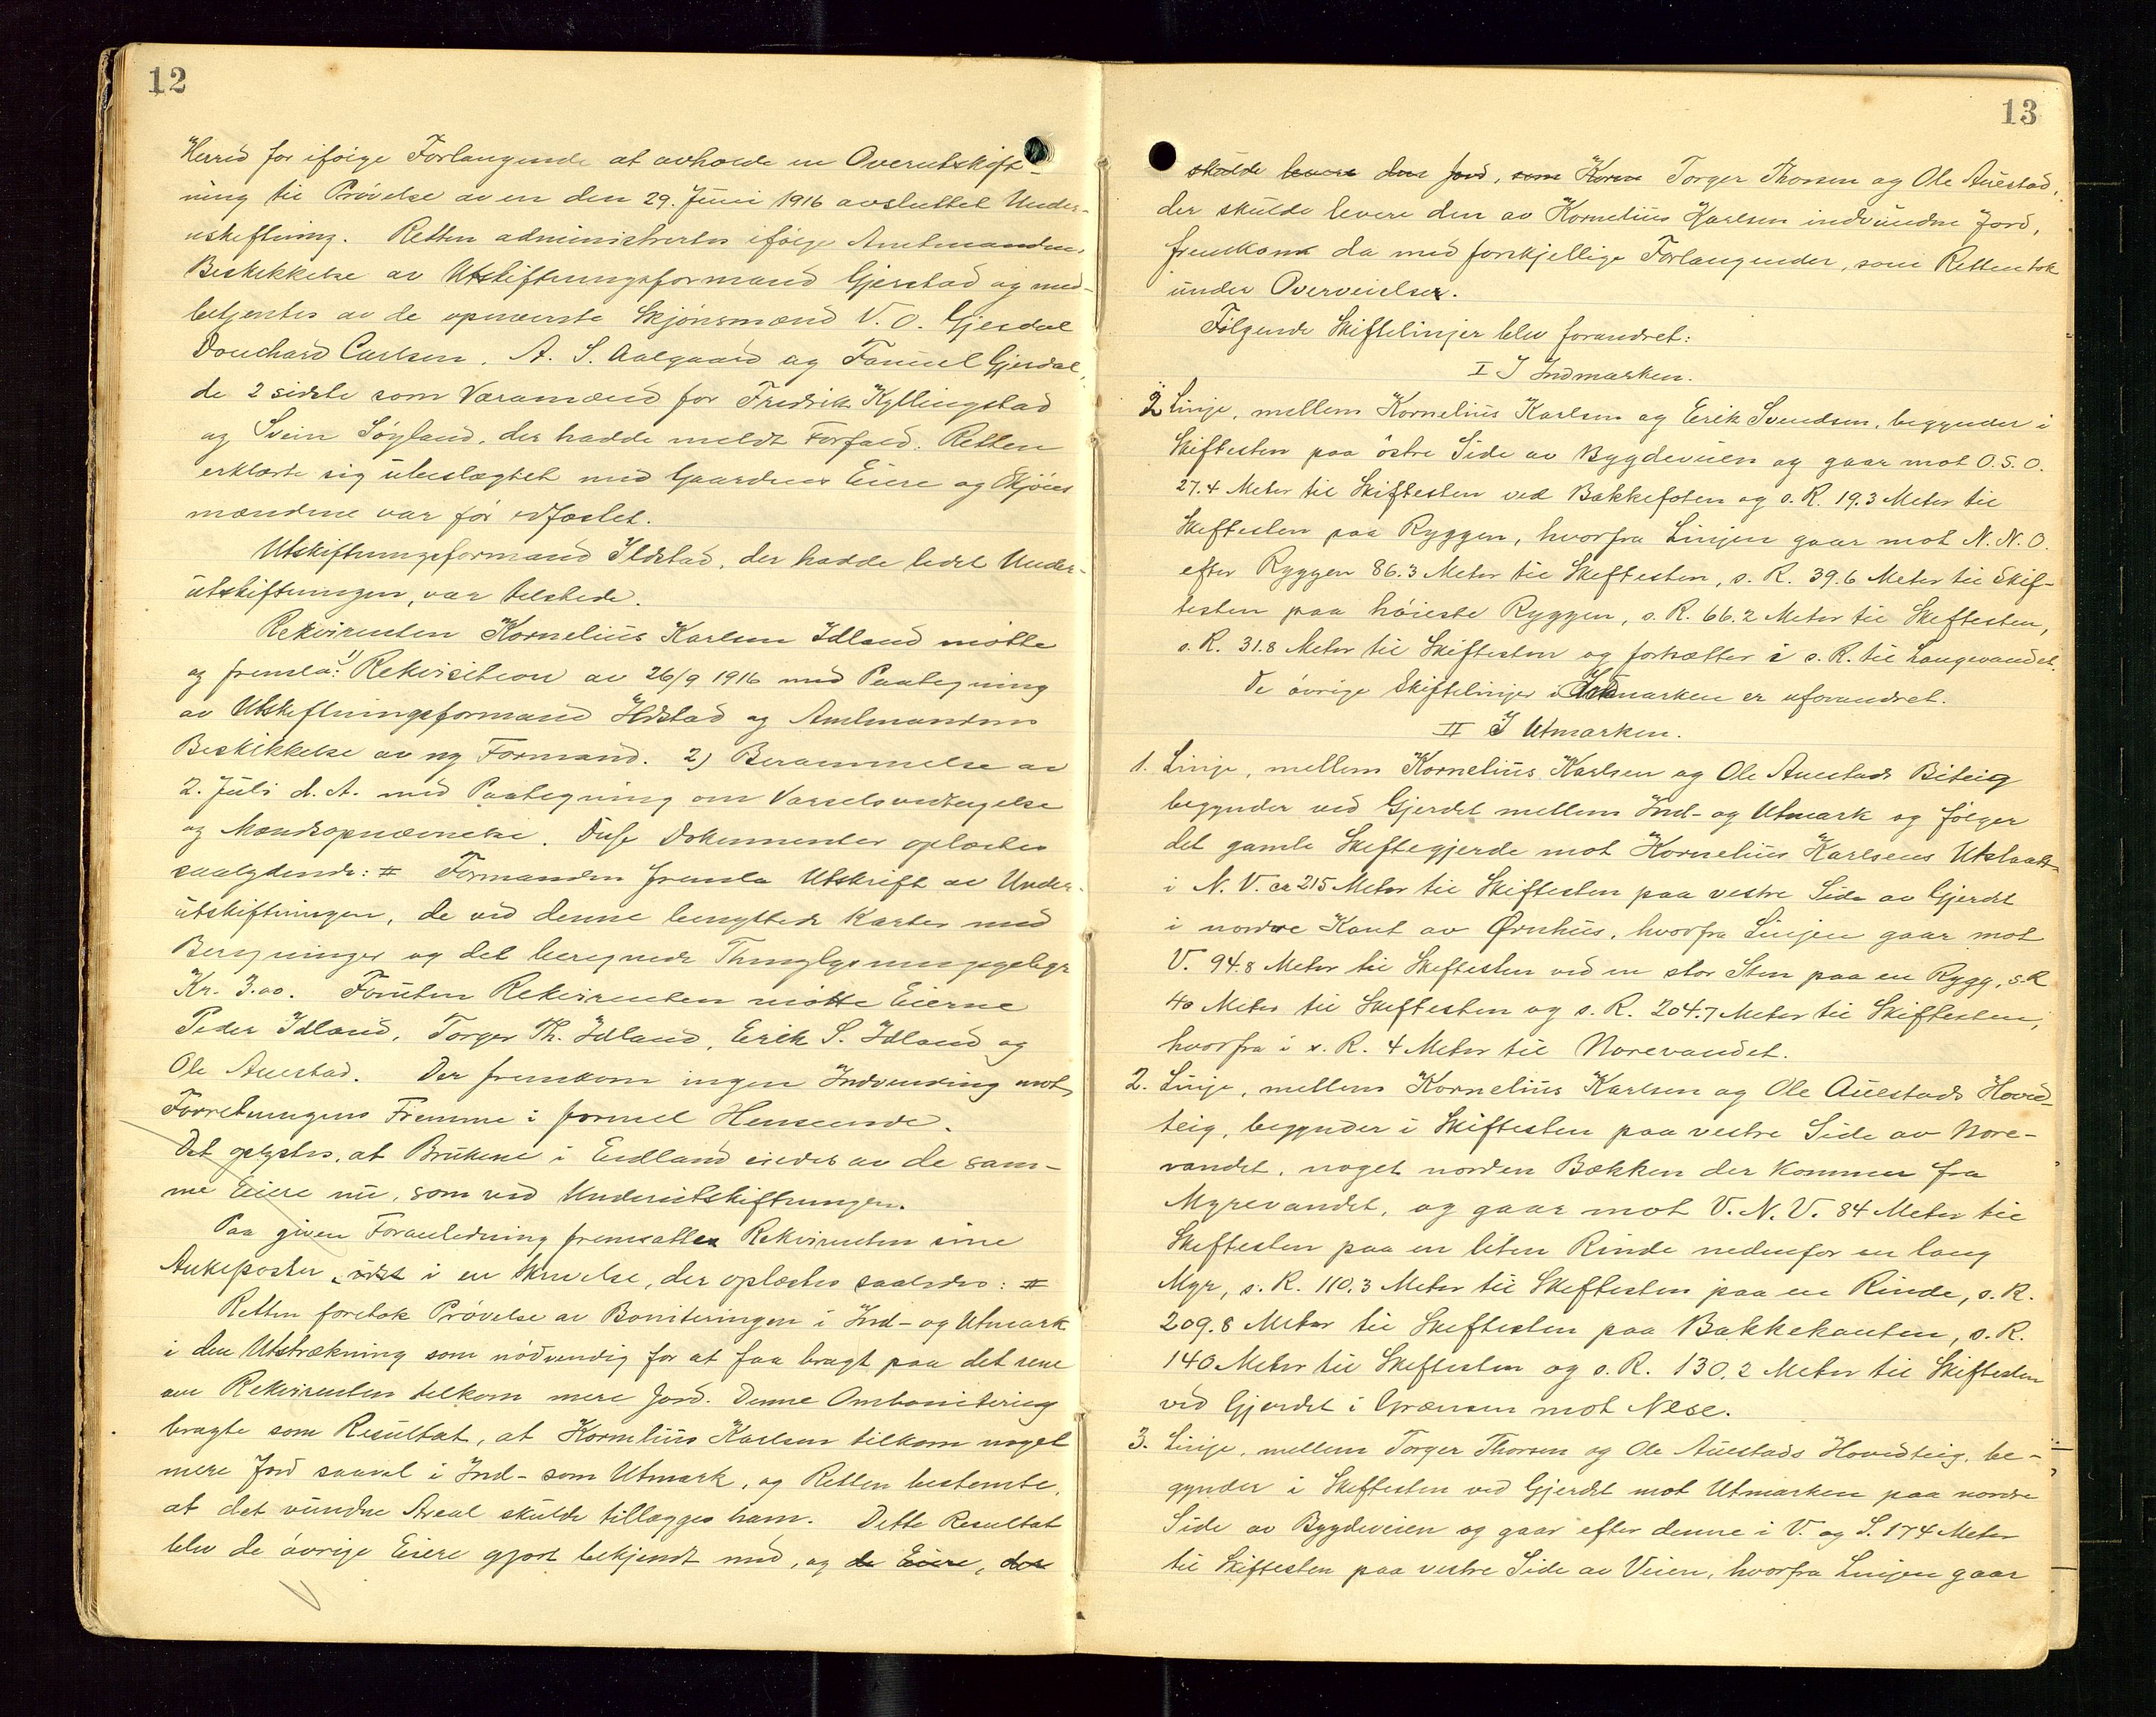 12
Herred for ifølge Forlangende at avholde en Overutskift-
ning til Prøvelse av en den 29. Juni 1916 avsluttet Under-
utskiftning. Retten administrertes ifølge Amtmandens
Beskikkelse av Utskiftningsformand Gjerstad og med-
betjentes av de opnævnte Skjønsmænd V. O. Gjesdal
Bouchard Carlsen, A. S. Aalgaard og Tarniel Gjesdal,
de 2 sidste som Varamænd for Fredrik Kyllingstad
og Svein Søyland, der hadde meldt Forfald. Retten
erklærte sig ubeslægtet med Gaardens Eiere og Skjøns
mændene var før edfæstet.
Utskiftningsformand Ildstad, der hadde ledet Under-
utskiftningen, var tilstede.
Rekvirenten Kornelius Karlsen Idland møtte
og fremla: 1) Rekvisition av 26/9 1916 med Paategning
av Utskiftningsformand Ildstad og Amtmandens
Beskikkelse av ny Formand. 2) Berammelse av
2. Juli d. A. med Paategning om Varselsvedtagelse
og Mændsopnævnelse. Disse Dokumenter oplæstes
saalydende: # Formanden fremla Utskrift av Under-
utskiftningen, de ved denne benyttede Karter med
Beregninger og det beregnede Thinglysningsgebyr
Kr. 3.00. Foruten Rekvirenten møtte Eierne
Peder Idland, Torger Th. Idland, Erik S. Idland og
Ole Auestad. Der fremkom ingen Indvending mot
Forretningens Fremme i formel Henseende.
Det oplystes, at Brukene i Eidland eiedes av de sam-
me Eiere nu, som ved Underutskiftningen.
Paa given Foranledning fremsattes Rekvirenten sine
Ankeposter i en Skrivelse, der oplæstes saalydes: #
Retten foretok Prøvelse av Boniteringen i Ind- og Utmark
i den Utstrækning som nødvendig for at faa bragt paa det rene
om Rekvirenten tilkom mere Jord. Denne Ombonitering
bragte som Resultat, at Kornelius Karlsen tilkom noget
mere Jord saavel i Ind- som Utmark, og Retten bestemte,
at det vundne Areal skulde tillægges ham. Dette Resultat
blev de øvrige Eiere gjort bekjendt med, og de Eiere, der
13
skulde levere den Jord, som Korne Torger Thorsen og Ole Auestad,
der skulde levere den av Kornelius Karlsen indvundne Jord,
fremkom da med forskjellige Forlangender, som Retten tok
under Overveielse.
Følgende Skiftelinjer blev forandret:
I I Indmarken.
2 Linje, mellem Kornelius Karlsen og Erik Svendsen, begynder i
Skiftesten paa østre Side av Bygdeveien og gaar mot O.S.O.
27.4 Meter til Skiftesten ved Bakkefoten og s. R. 19.3 Meter til
Skiftesten paa Ryggen, hvorfra Linjen gaar mot N. N. O.
efter Ryggen 86.3 Meter til Skiftesten, s. R. 39.6 Meter til Skif-
testen paa høieste Ryggen, s. R. 66.2 Meter til Skiftesten,
s. R. 31.8 Meter til Skiftesten og fortsætter i s. R. til Langevandet.
De øvrige Skiftelinjer i Indmarken er uforandret.
II I Utmarken.
1. Linje, mellem Kornelius Karlsen og Ole Auestads Biteig
begynder ved Gjerdet mellem Ind- og Utmark og følger
det gamle Skiftegjerde mot Kornelius Karlsens Utslaat
i N. V. ca 215 Meter til Skiftesten paa vestre Side av Gjerdet
i nordre Kant av Ørnhus, hvorfra Linjen gaar mot
V. 94.8 Meter til Skiftesten ved en stor Sten paa en Rygg, s. R
40 Meter til Skiftesten og s. R. 204.7 Meter til Skiftesten,
hvorfra i s. R. 4 Meter til Norevandet.
2. Linje, mellem Kornelius Karlsen og Ole Auestads Hoved-
teig, begynder i Skiftesten paa vestre Side av Nore-
vandet, noget norden Bækken der kommer fra
Myrevandet, og gaar mot V. N. V. 84 Meter til
Skiftesten paa en liten Rinde nedenfor en lang
Myr, s. R. 110.3 Meter til Skiftesten paa en Rinde, s. R.
209.8 Meter til Skiftesten paa Bakkekanten, s. R.
140 Meter til Skiftesten og s. R. 130.2 Meter til Skiftesten
ved Gjerdet i Grænsen mot Nese.
3. Linje, mellem Torger Thorsen og Ole Auestads Hovedteig, be-
gynder i Skiftesten ved Gjerdet mot Utmarken paa nordre
Side av Bygdeveien og gaar efter denne i V. og S. 174 Meter
til Skiftesten paa vestre Side av Veien, hvorfra Linjen gaar